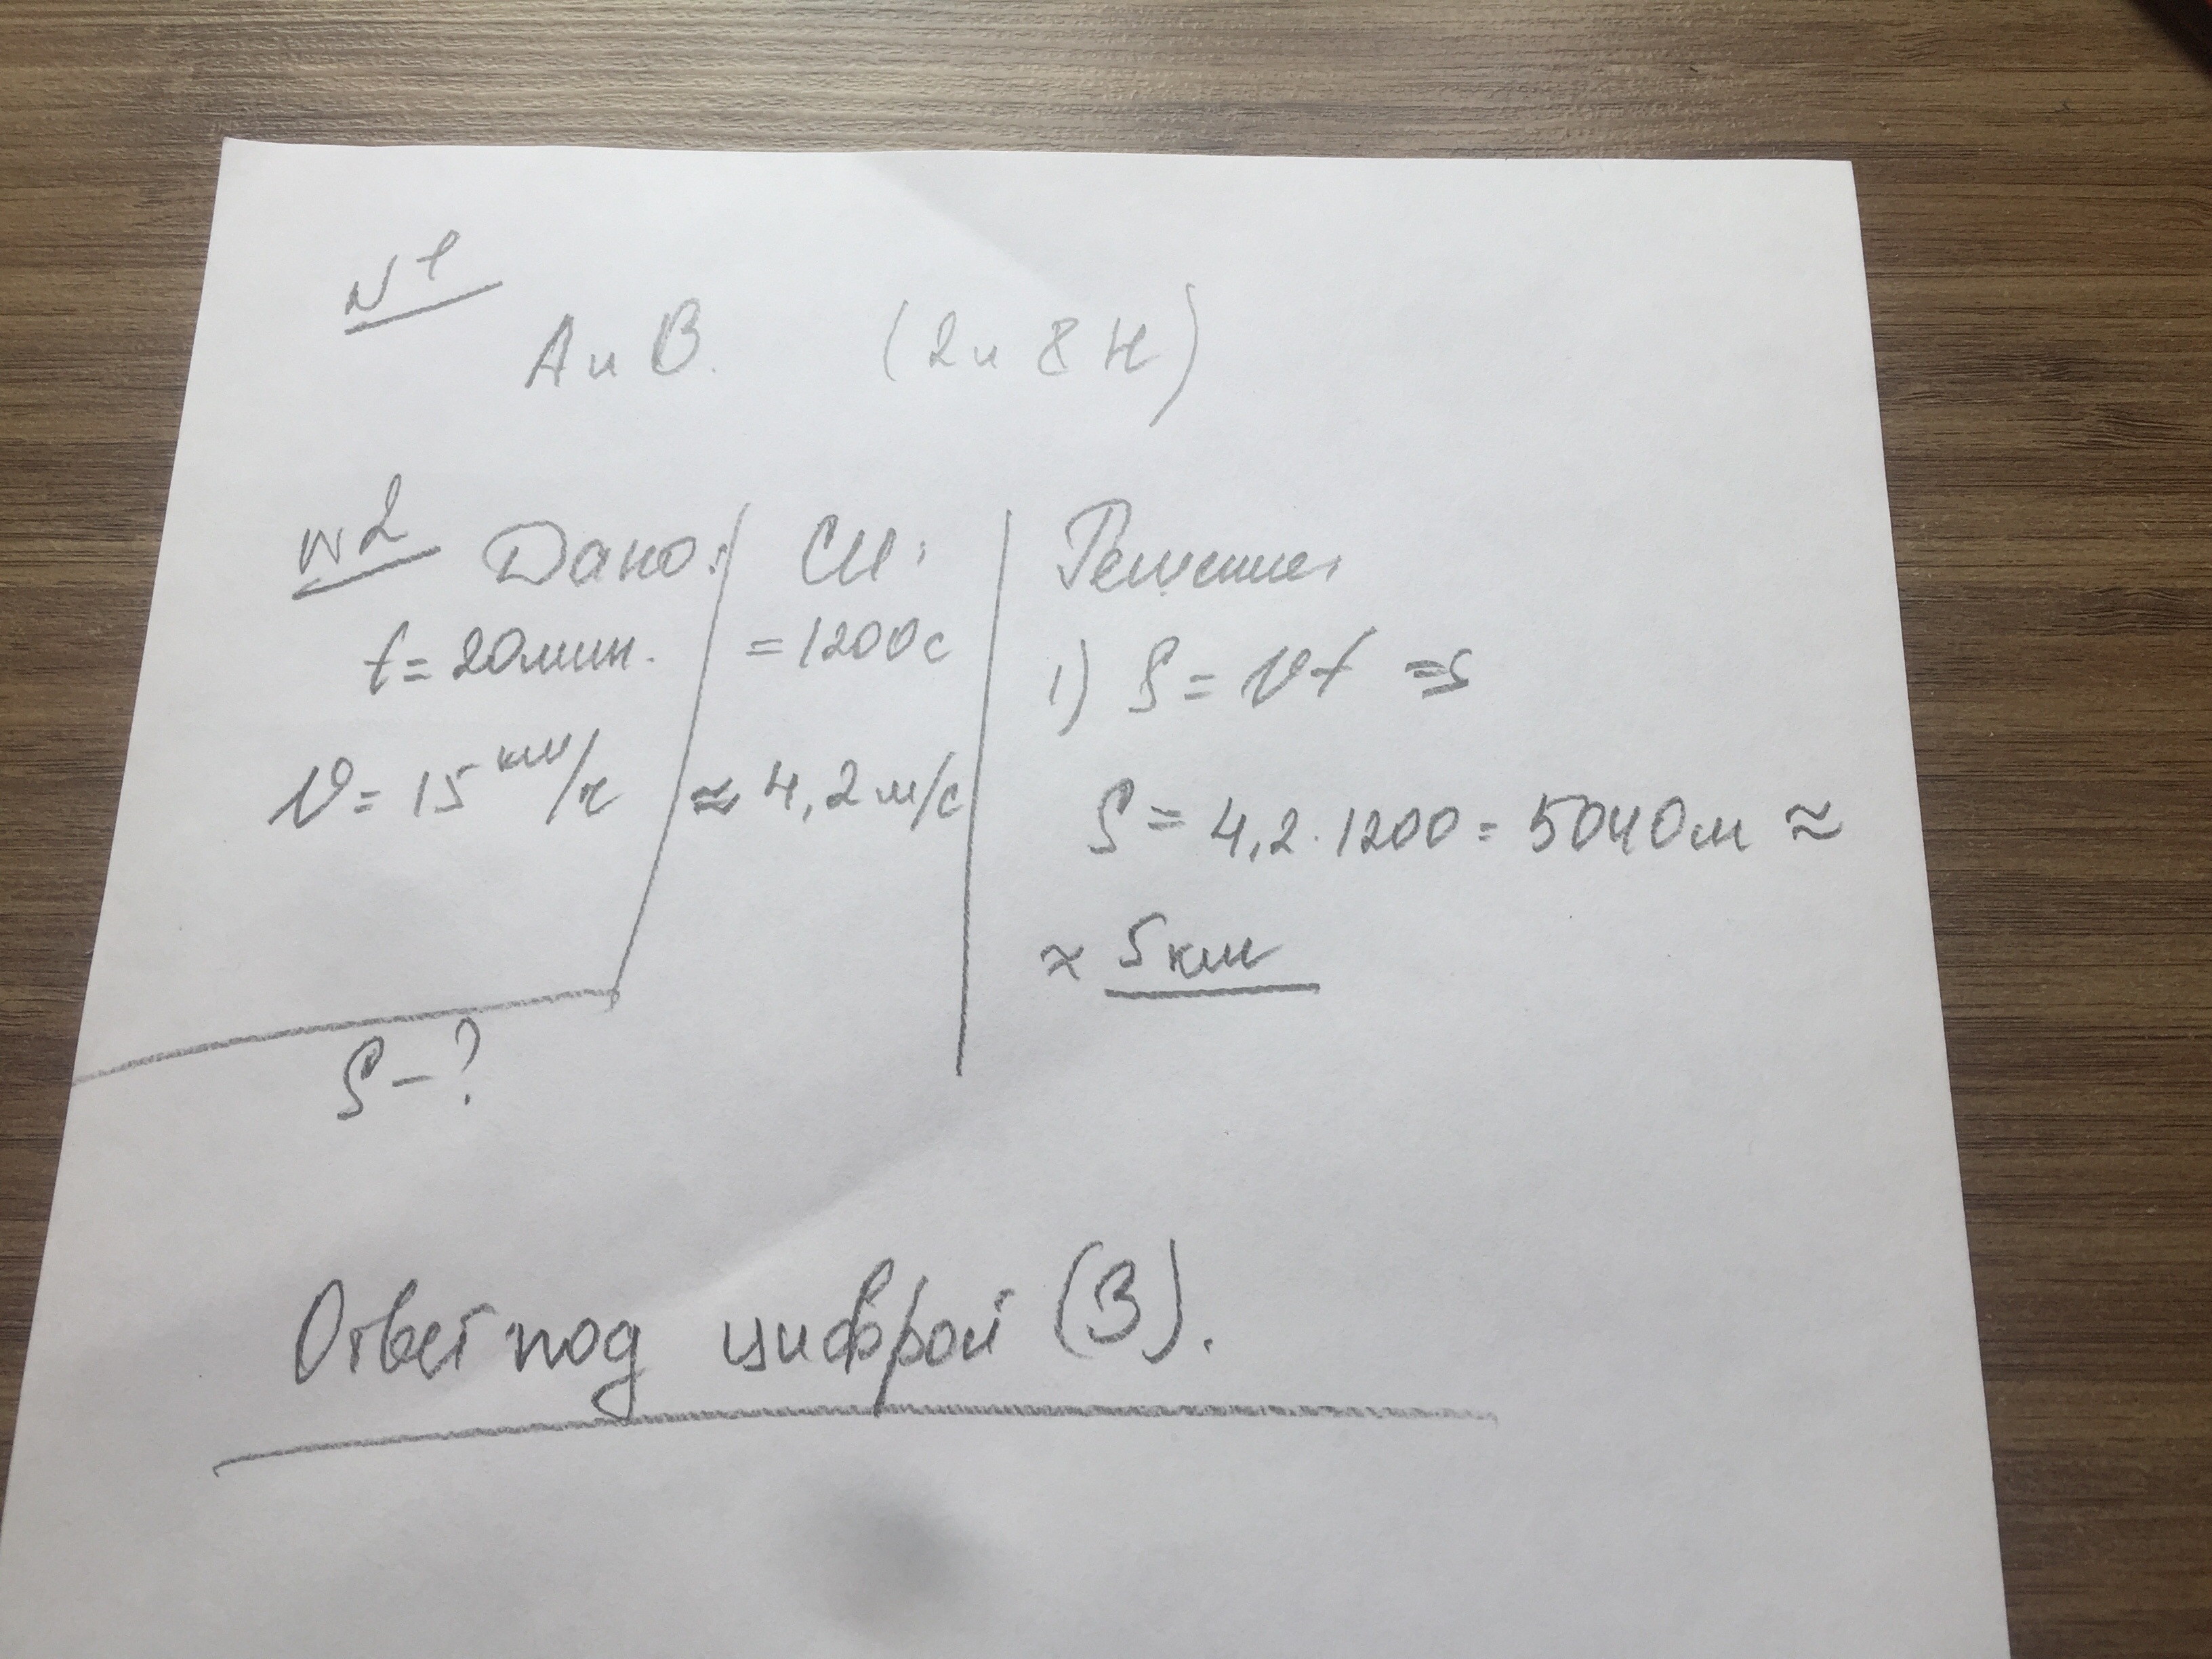 №1
А и В. (2 и 8 Н)
№2 Дано: СИ: Решение:
t = 20 мин. = 1200 с 1) S = Vt =>
V = 15 км/ч ≈ 4,2 м/с S = 4,2 · 1200 = 5040 м ≈
≈ 5 км
S - ?
Ответ под цифрой (3).